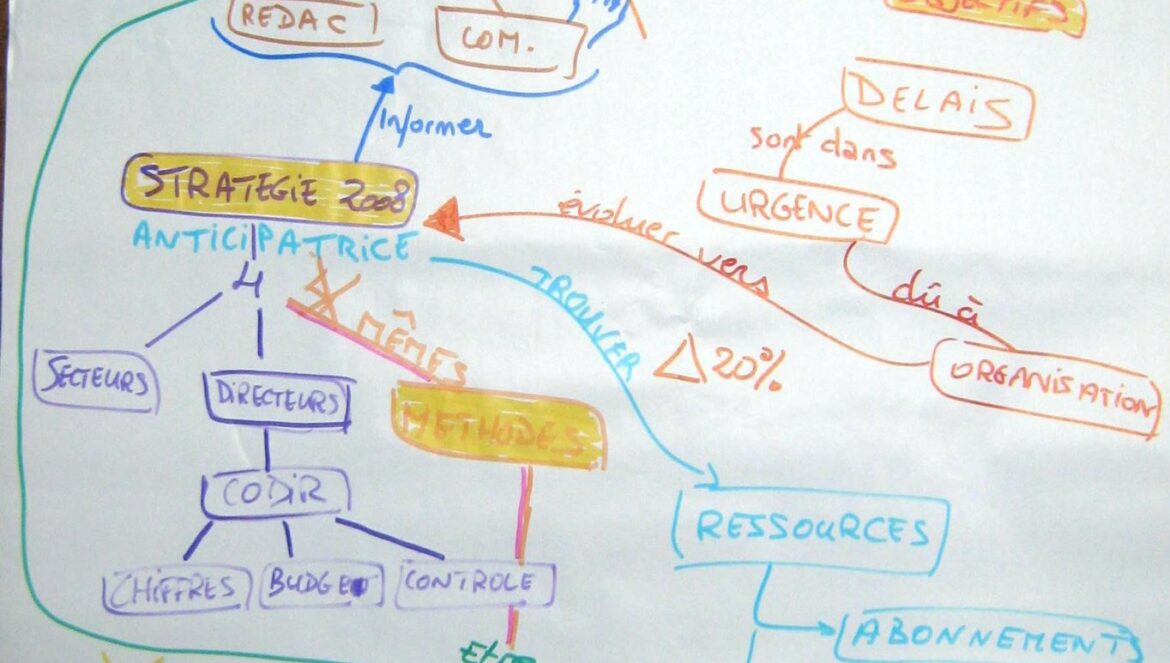 REDAC
COM.
OBJECTIFS
DELAIS
Informer
sont dans
STRATEGIE 2008
URGENCE
évoluer vers
ANTICIPATRICE
4
TROUVER
dû à
MÊMES
Δ 20%
ORGANISATION
SECTEURS
DIRECTEURS
METHODES
CODIR
RESSOURCES
CHIFFRES
BUDGET
CONTROLE
ABONNEMENTS